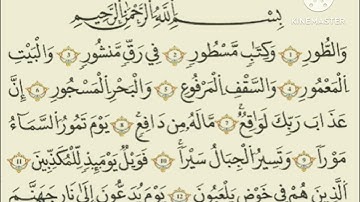 بِسْمِ اللَّهِ الرَّحْمَٰنِ الرَّحِيمِ
KINEMASTER
وَالطُّورِ ١ وَكِتَابٍ مَّسْطُورٍ ٢ فِي رَقٍّ مَّنشُورٍ ٣ وَالْبَيْتِ
الْمَعْمُورِ ٤ وَالسَّقْفِ الْمَرْفُوعِ ٥ وَالْبَحْرِ الْمَسْجُورِ ٦ إِنَّ
عَذَابَ رَبِّكَ لَوَاقِعٌ ٧ مَّا لَهُ مِن دَافِعٍ ٨ يَوْمَ تَمُورُ السَّمَاءُ
مَوْرًا ٩ وَتَسِيرُ الْجِبَالُ سَيْرًا ١٠ فَوَيْلٌ يَوْمَئِذٍ لِّلْمُكَذِّبِينَ ١١
الَّذِينَ هُمْ فِي خَوْضٍ يَلْعَبُونَ ١٢ يَوْمَ يُدَعُّونَ إِلَىٰ نَارِ جَهَنَّمَ